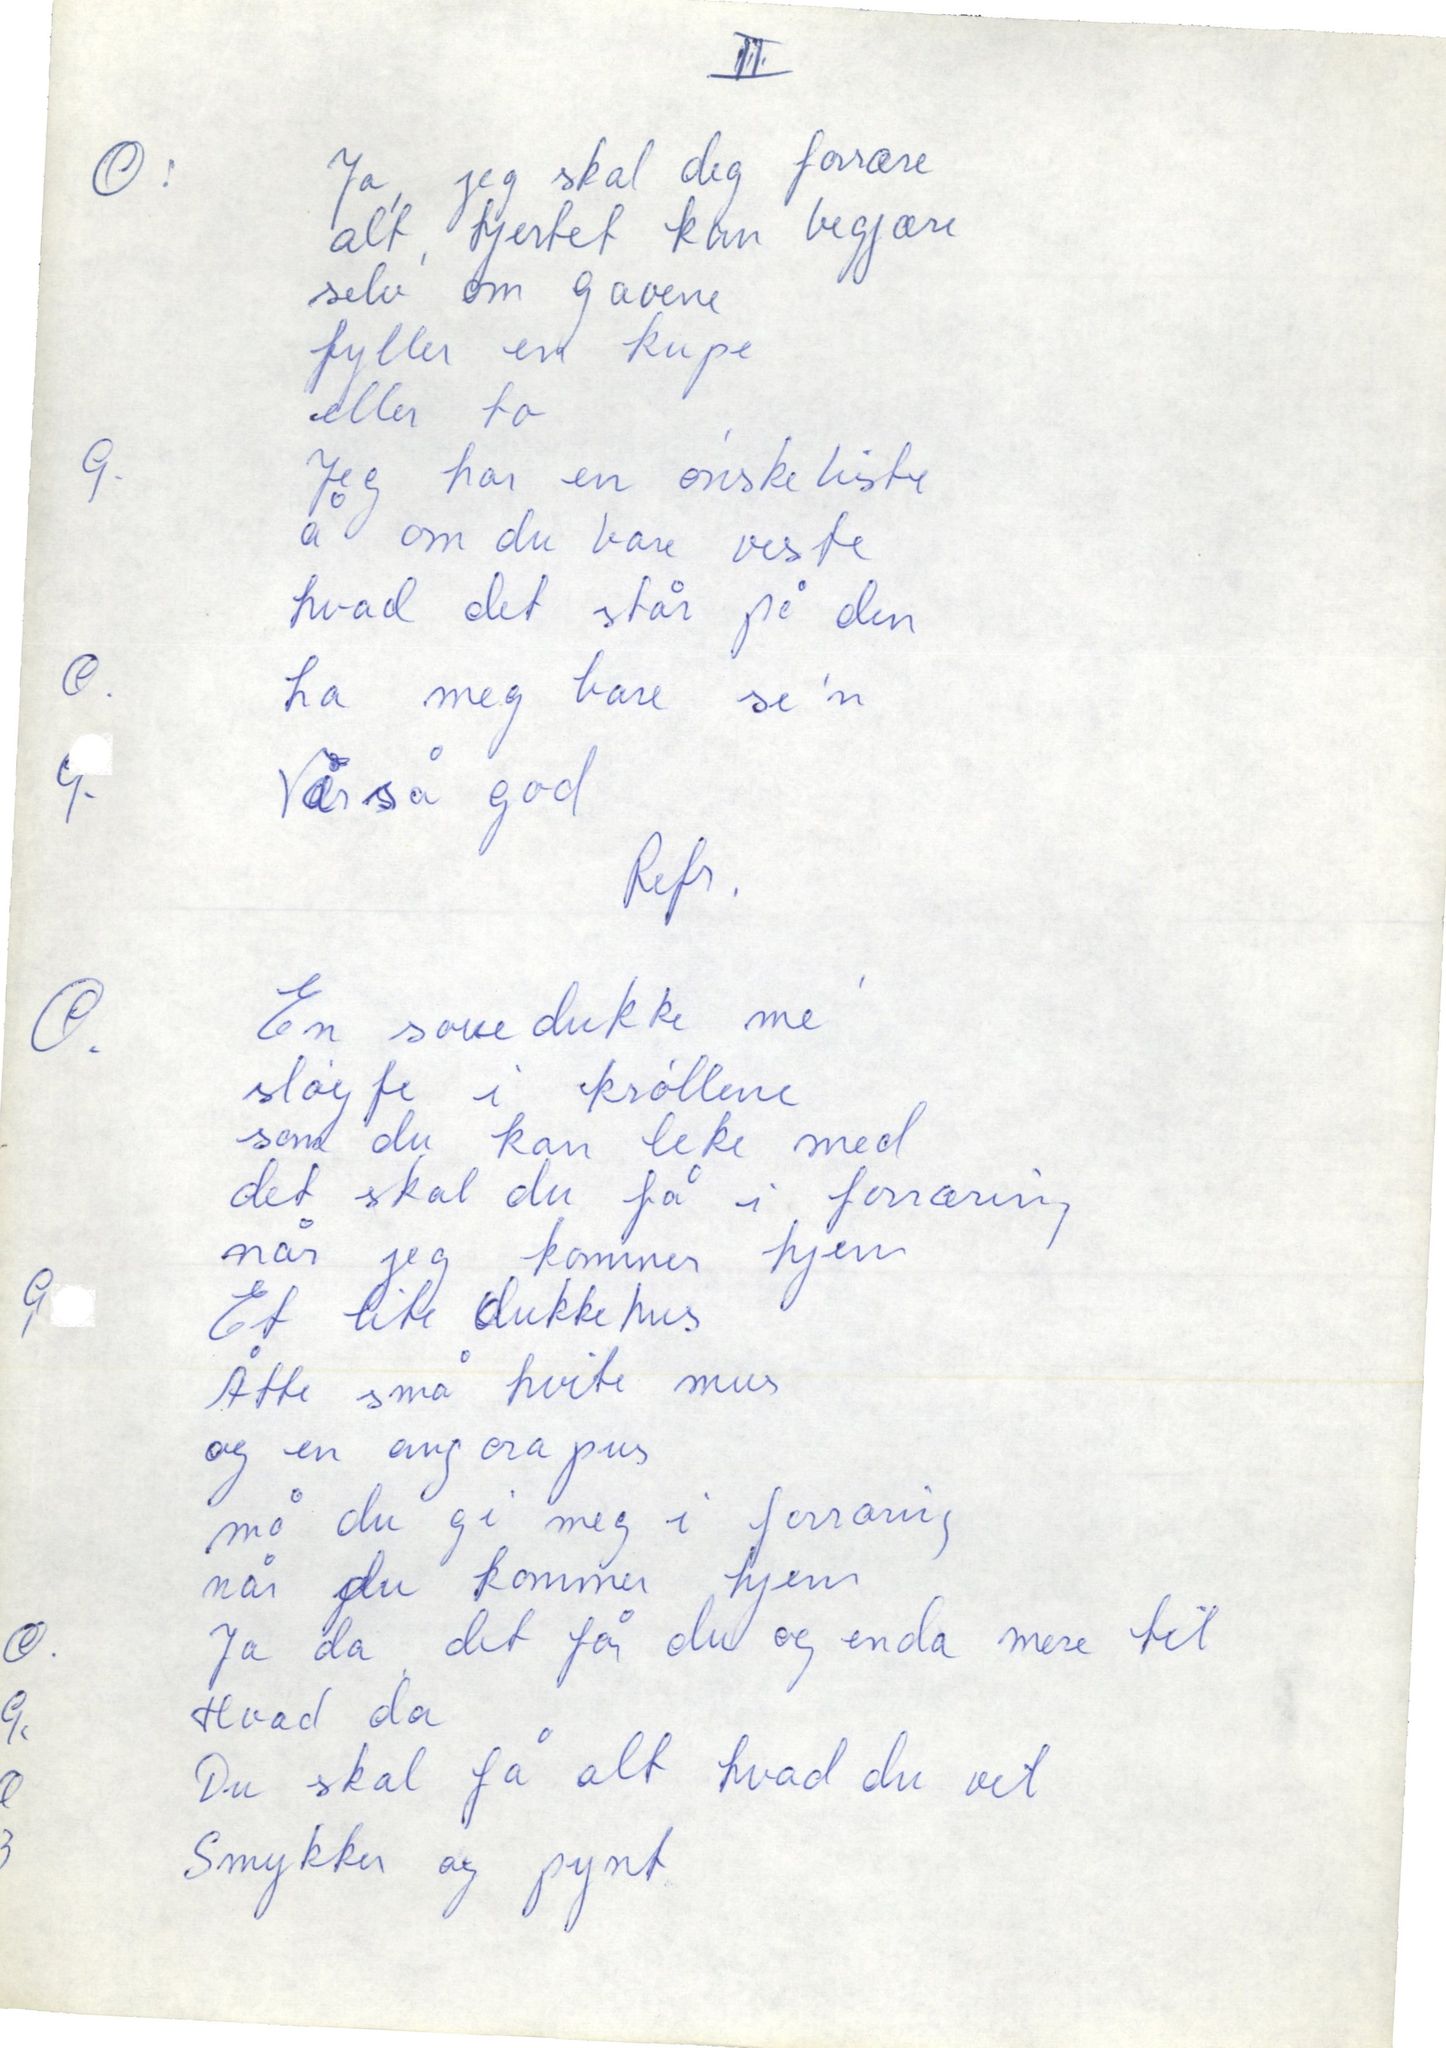 III.
O: Ja, jeg skal deg forrære
alt, hjertet kan begjære
selv om gavene
fyller en kupe
eller to
G. Jeg har en ønskeliste
å om du bare visste
hvad det står på den
O. La meg bare se'n
G. Vår så god
Refr.
O. En sove dukke me'
sløyfe i krøllene
som du kan leke med
det skal du få i forræring
når jeg kommer hjem
G. Et lite dukkehus
Åtte små hvite mus
og en angora pus
må du gi meg i forræring
når du kommer hjem
O. Ja da, det får du og enda mere til
G. Hvad da
O Du skal få alt hvad du vil
Smykker og pynt.